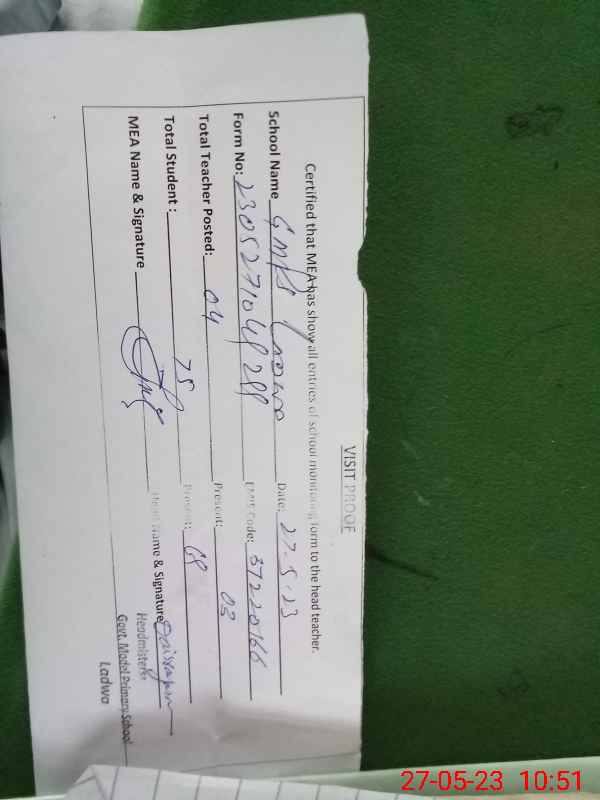 VISIT PROOF
Certified that MEA has show all entries of school monitoring form to the head teacher.
School Name GMPS Ladwa Date: 27-5-23
Form No: 230527104 EMIS Code: 37220166
Total Teacher Posted: 04 Present: 03
Total Student : 75 Present: 68
MEA Name & Signature Head Name & Signature
Headmisters
Govt. Model Primary School
Ladwa
27-05-23 10:51